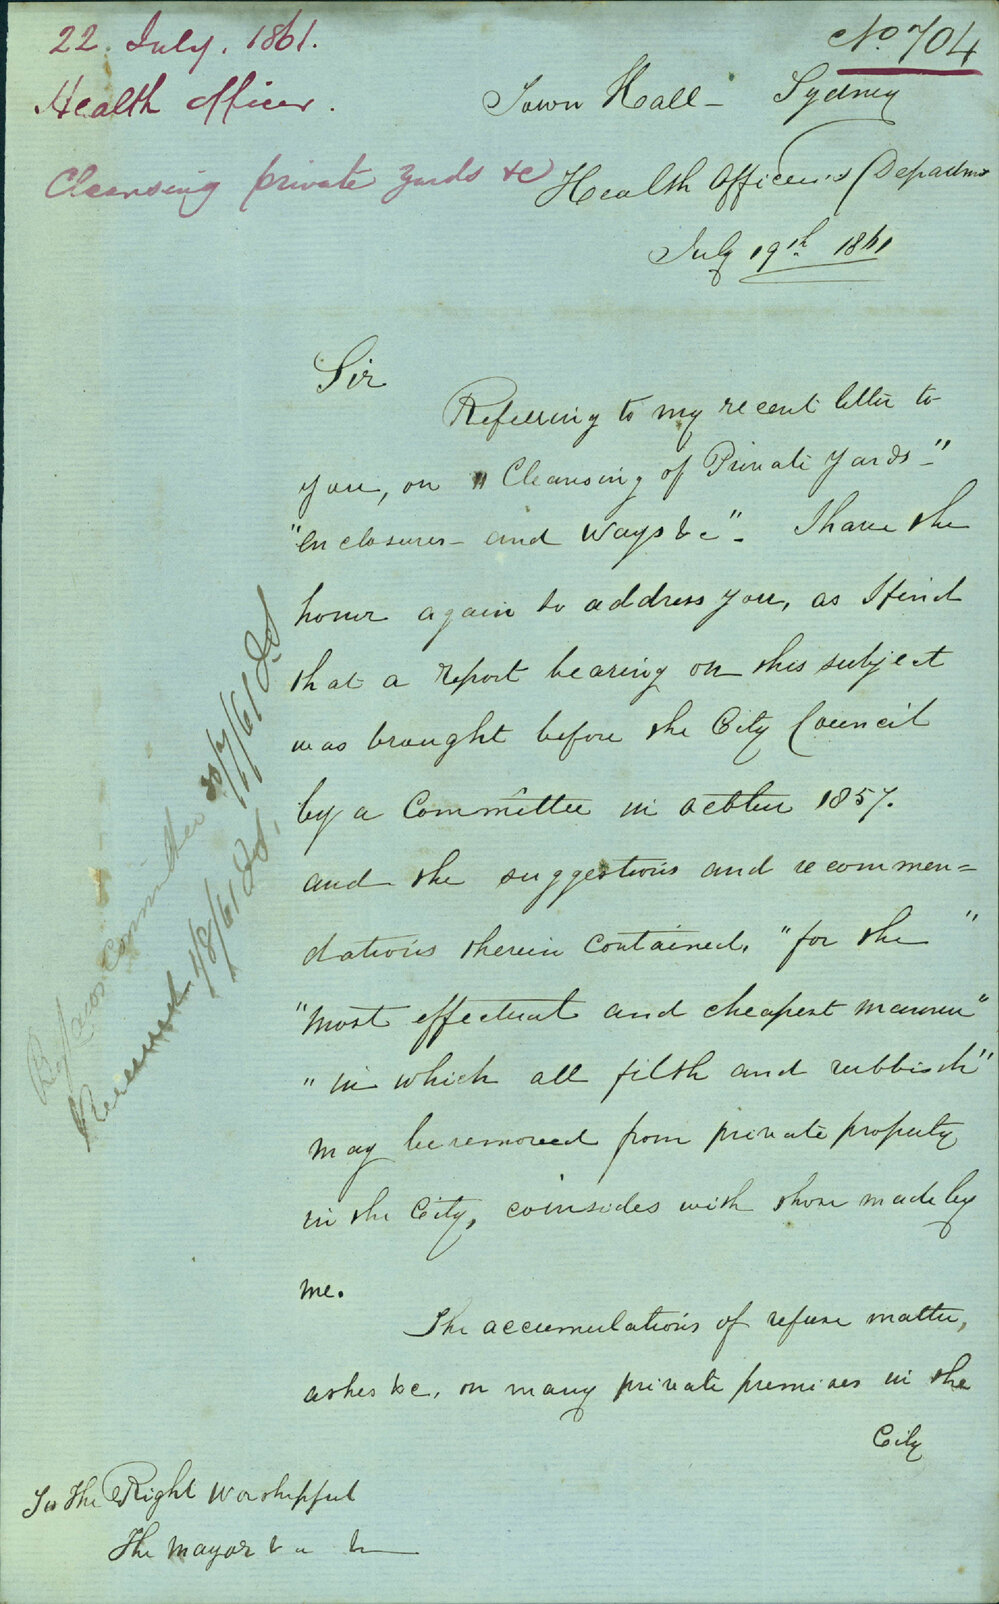 22. July. 1861.
No. 704
Health Officer.
Town Hall - Sydney
Cleansing private yards &c
Health Officer's Departmt
July 19th 1861
Sir
Referring to my recent letter to
you, on "Cleansing of Private Yards-"
"enclosures - and ways &c"- I have the
honor again to address you, as I find
that a report bearing on this subject
was brought before the City Council
by a Committee in octber 1857.
and the suggestions and recommen=
dations therein contained, "for the"
"most effectual and cheapest manner"
"in which all filth and rubbish"
may be removed from private property
in the City, coinsides with those made by
me.
The accumulations of refuse matter,
ashes &c, on many private premises in the
City
To The Right Worshipful
The Mayor &c &c
Committee 30/7/61
4/8/61